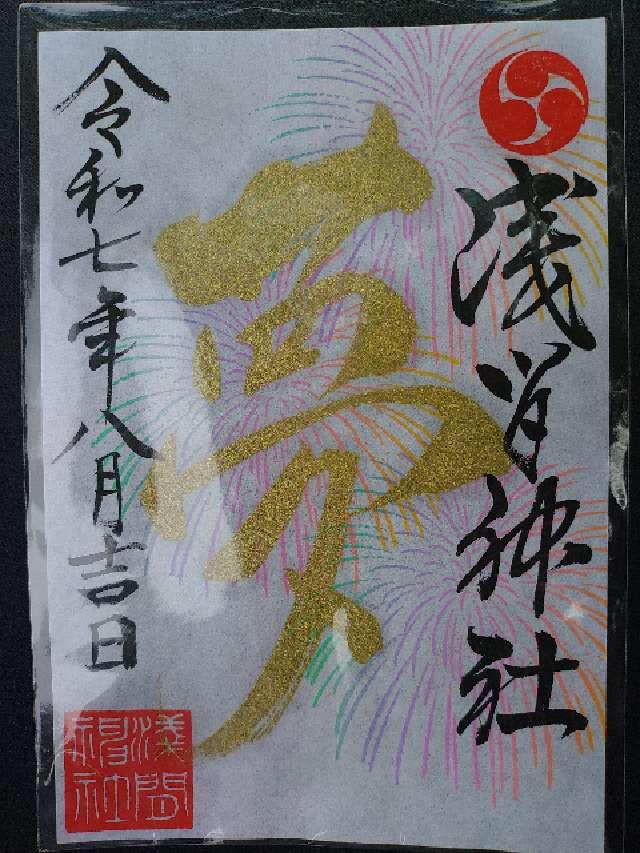 浅間神社
夢
令和七年八月吉日
浅間
神社